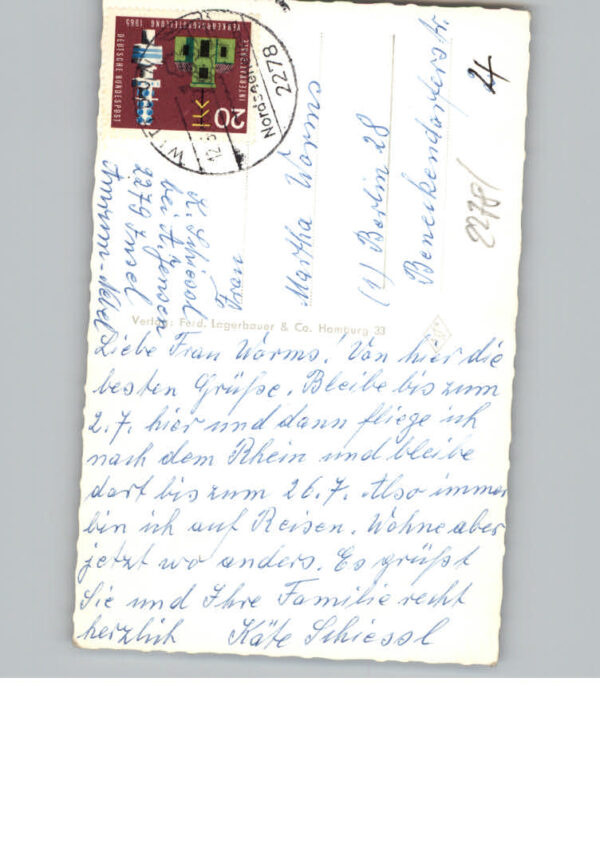 Liebe Frau Worms! Von hier die
besten Grüße. Bleibe bis zum
2.7. hier und dann fliege ich
nach dem Rhein und bleibe
dort bis zum 26.7. Also immer
bin ich auf Reisen. Wohne aber
jetzt wo anders. Es grüßt
Sie und Ihre Familie recht
herzlich Käte Schiessl
Verlag: Ferd. Lagerbauer & Co. Hamburg 33
K. Schiessl
bei A. Jensen
2279 Insel
Amrum-Nebel
Frau
Martha Worms
(1) Berlin 28
Beneckendorfferstr.
24
2278/
DEUTSCHE BUNDESPOST
INTERNATIONALE
VERKEHRSAUSSTELLUNG 1965
20
2278